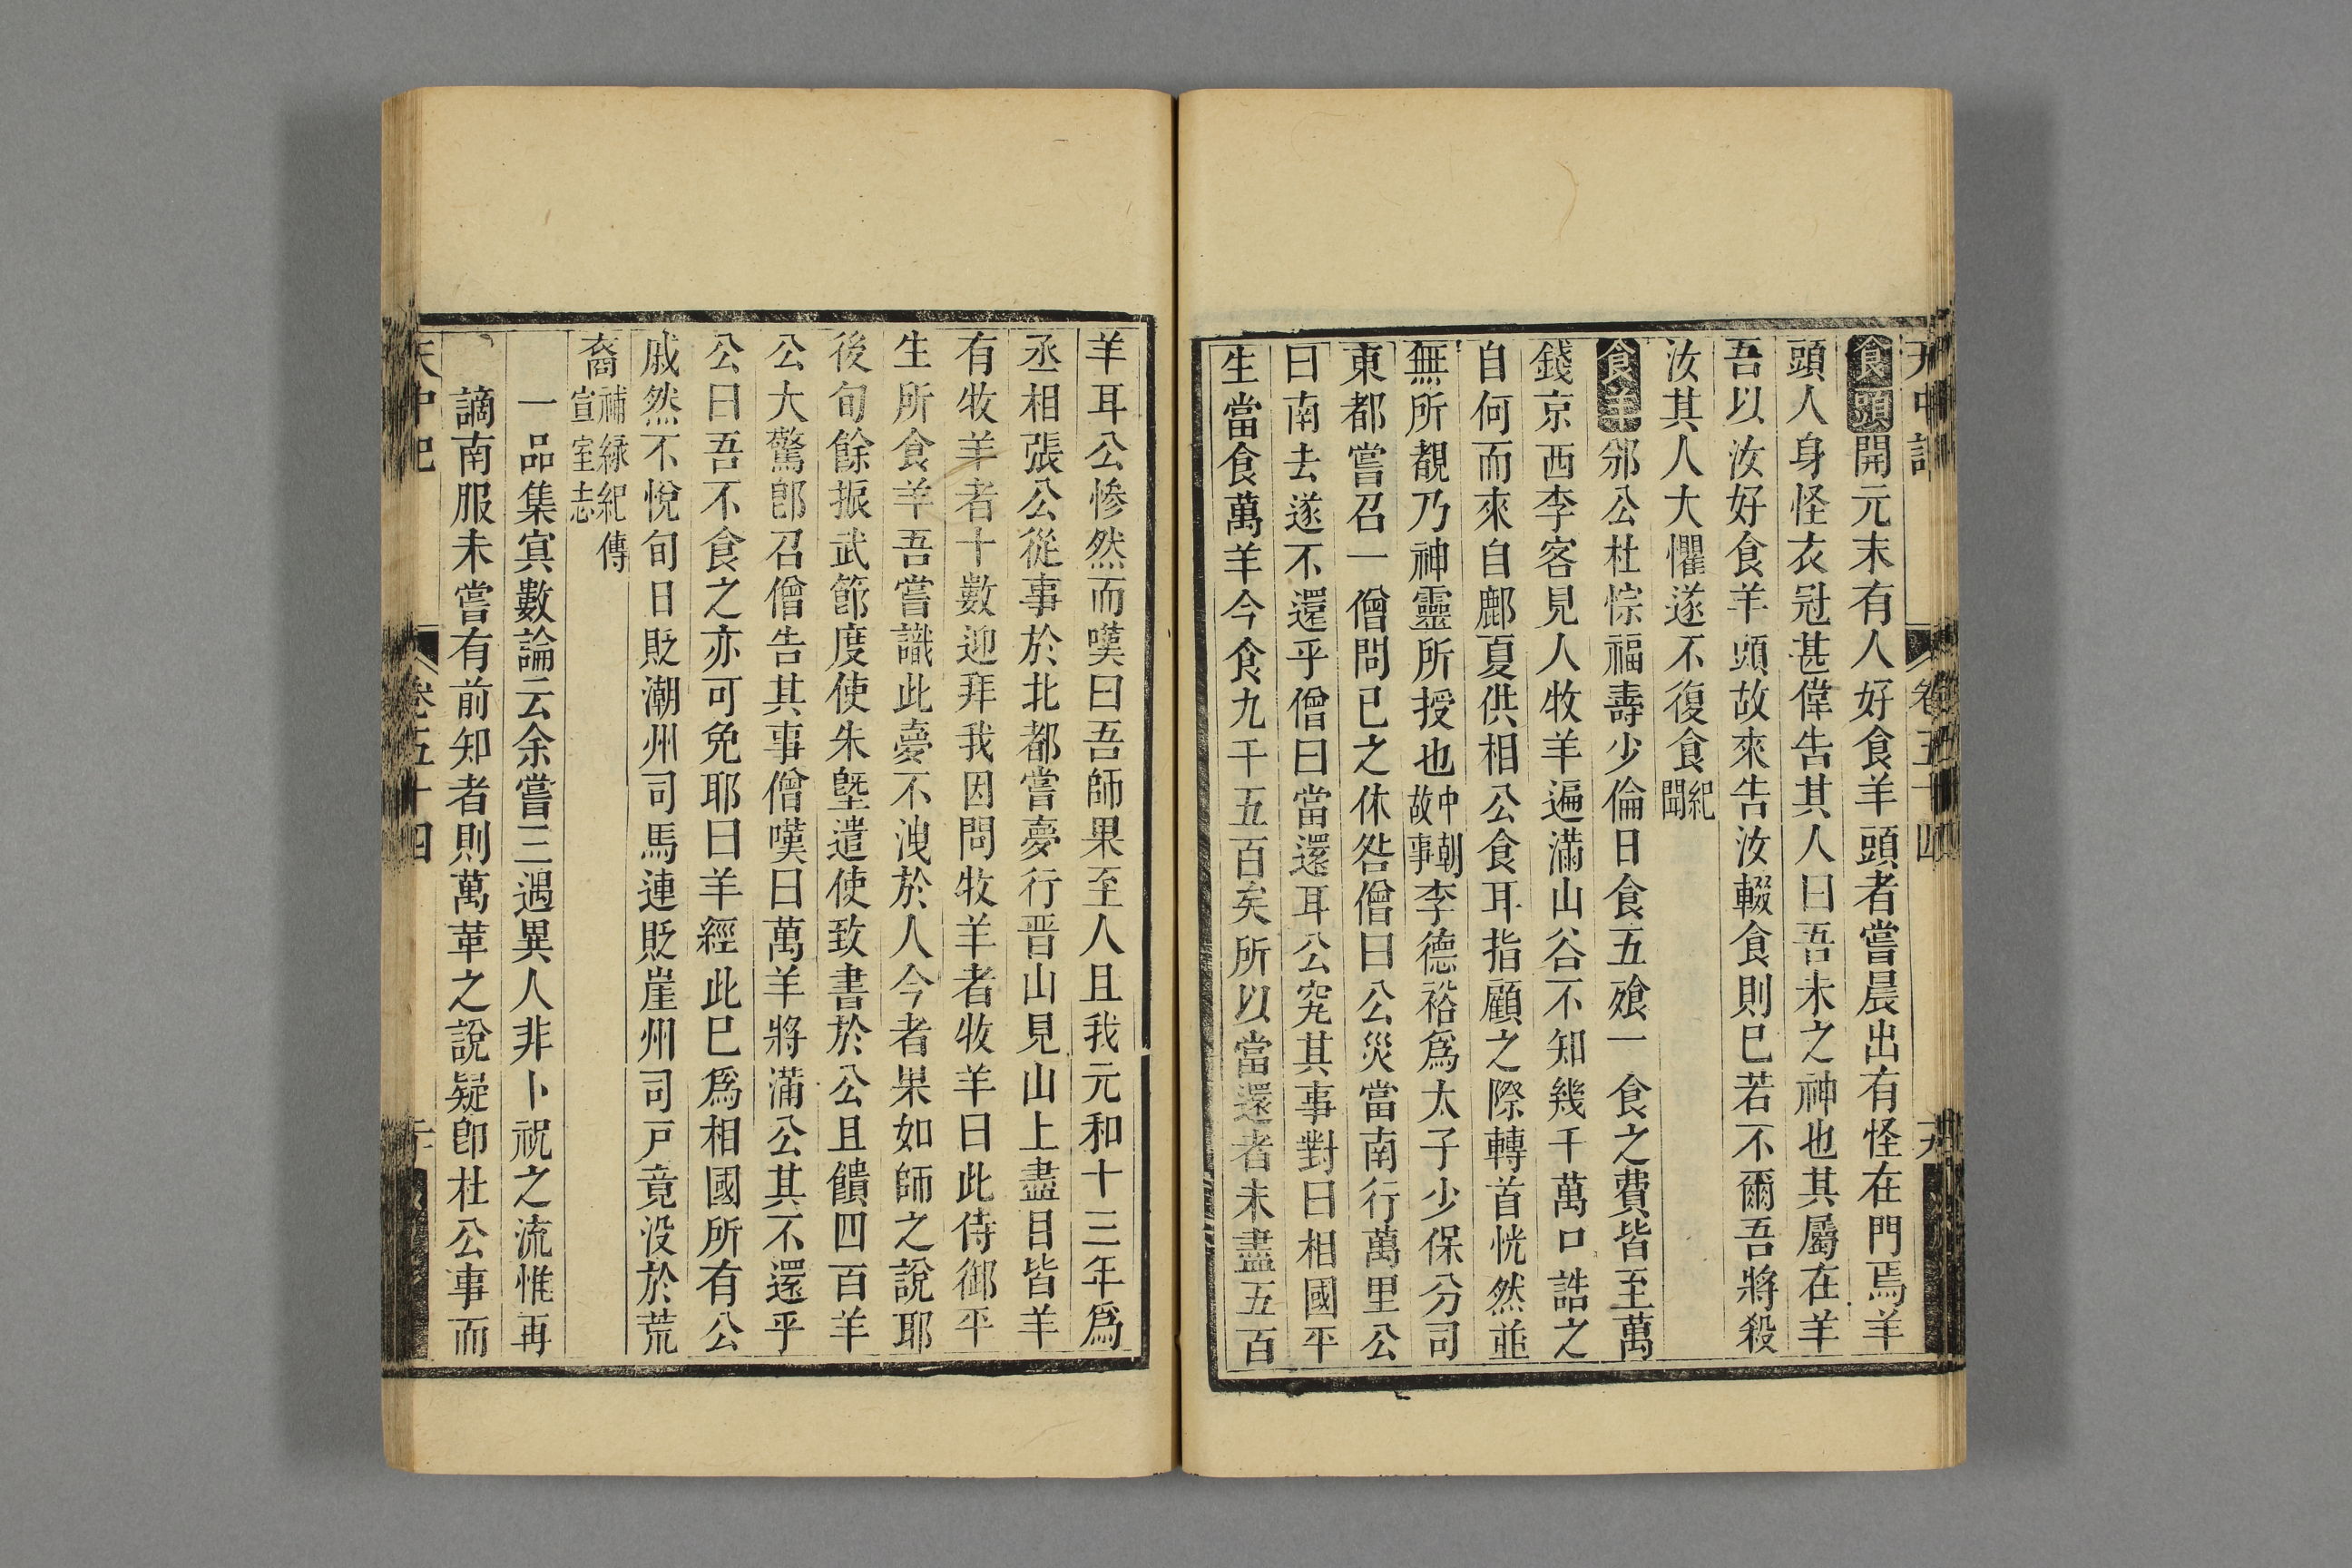 天中記 卷五十四
食頭開元末有人好食羊頭者嘗晨出有怪在門焉羊
頭人身怪衣冠甚偉告其人曰吾未之神也其屬在羊
吾以汝好食羊頭故來告汝輟食則已若不爾吾將殺
汝其人大懼遂不復食紀聞
食羊邠公杜悰福壽少倫日食五飧一食之費皆至萬
錢京西李客見人牧羊遍滿山谷不知幾千萬口詰之
自何而來自鄜夏供相公食耳指顧之際轉首恍然並
無所覩乃神靈所授也中朝故事李德裕爲太子少保分司
東都嘗召一僧問已之休咎僧曰公災當南行萬里公
曰南去遂不還乎僧曰當還耳公究其事對曰相國平
生當食萬羊今食九千五百矣所以當還者未盡五百
羊耳公慘然而嘆曰吾師果至人且我元和十三年爲
丞相張公從事於北都嘗夢行晋山見山上盡目皆羊
有牧羊者十數迎拜我因問牧羊者牧羊曰此侍御平
生所食羊吾嘗識此夢不洩於人今者果如師之說耶
後旬餘振武節度使朱塈遣使致書於公且饋四百羊
公大驚卽召僧告其事僧嘆曰萬羊將滿公其不還乎
公曰吾不食之亦可免耶曰羊經此已爲相國所有公
戚然不悅旬日貶潮州司馬連貶崖州司戸竟沒於荒
裔補綠紀傳宣室志
一品集㝠數論云余嘗三遇異人非卜祝之流惟再
謫南服未嘗有前知者則萬革之說疑卽杜公事而
天中記 卷五十四 二十